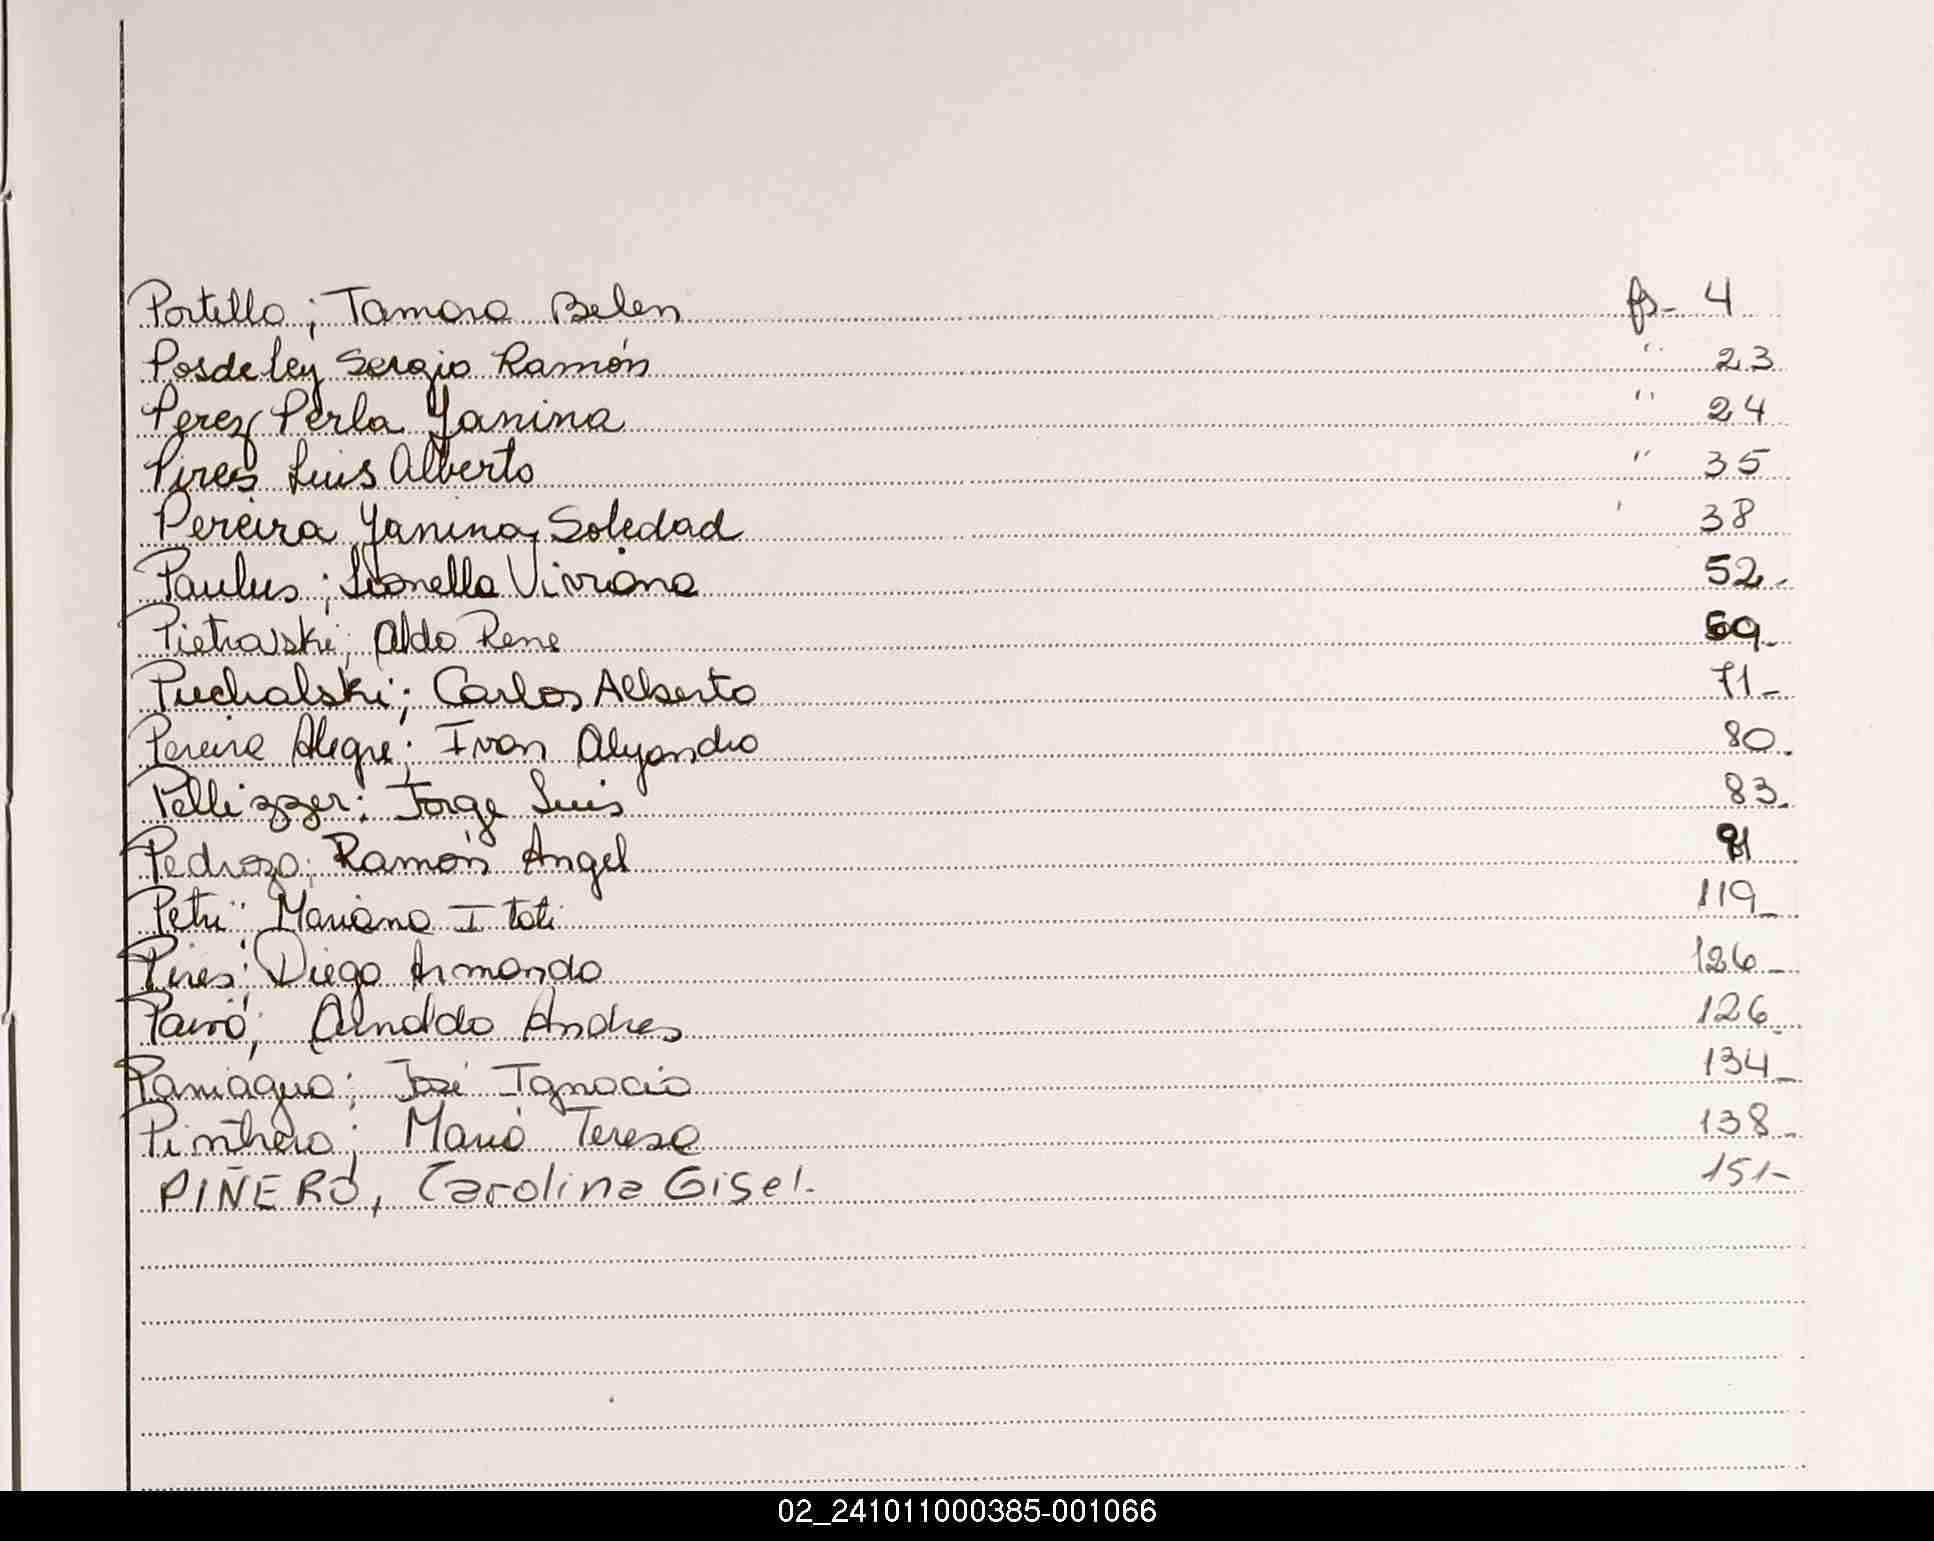 Portillo; Tamara Belen fs- 4
Posdeley Sergio Ramón " 23
Perez Perla Yanina " 24
Pires Luis Alberto " 35
Pereira Yanina Soledad ' 38
Paulus; Lionella Viviana 52-
Pietrowski; Aldo Rene 59-
Puchalski; Carlos Alberto 71-
Pereira Alegre; Ivan Alejandro 80.
Pellizzer: Jorge Luis 83.
Pedrozo; Ramón Angel 91
Petri; Mariana Itati 119-
Pires; Diego Armando 126-
Parró; Arnaldo Andres 126-
Paniagua; José Ignacio 134-
Pinthero; Maria Teresa 138-
PIÑERO, Carolina Gisel. 151-
02_241011000385-001066